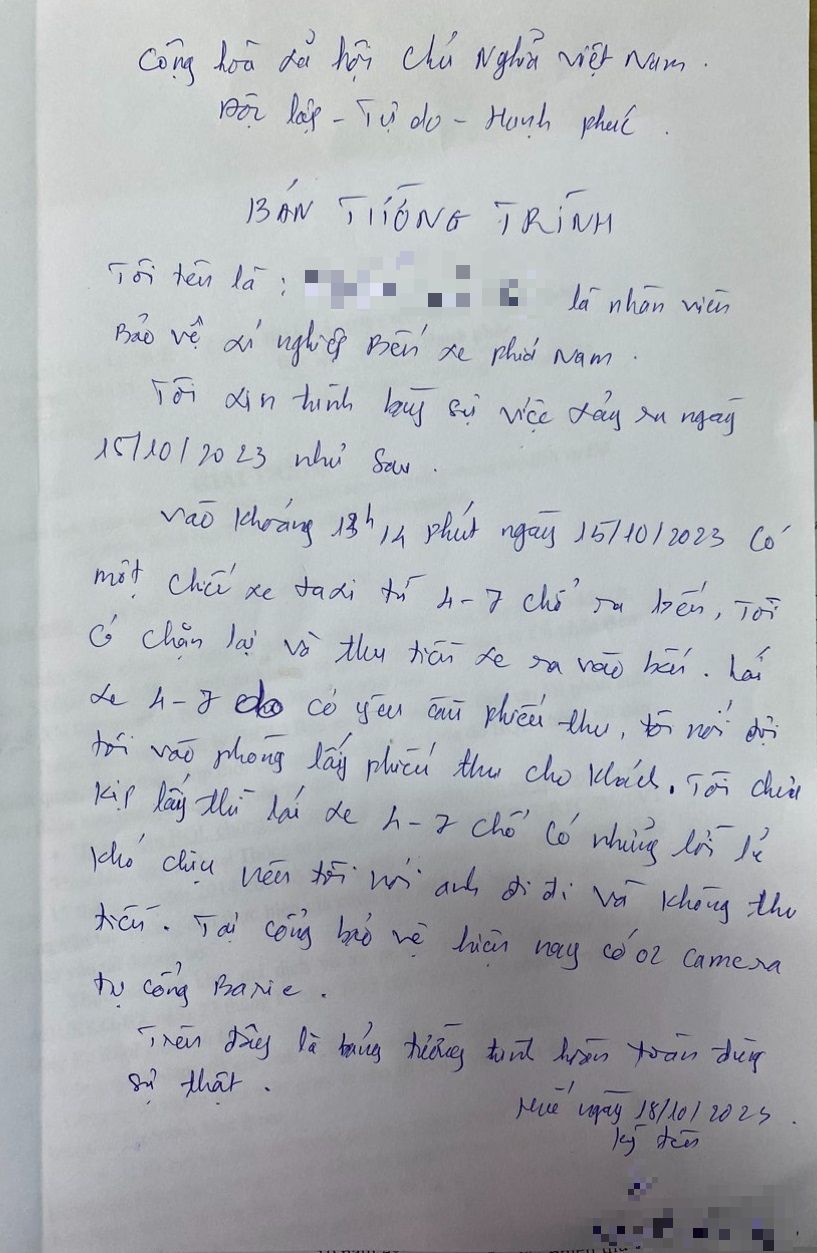 Cộng hoà xã hội chủ Nghĩa việt Nam.
Độc lập - Tự do - Hạnh phúc.
BẢN TƯỜNG TRÌNH
Tôi tên là : là nhân viên
Bảo vệ xí nghiệp Bến xe phía Nam.
Tôi xin trình bày sự việc xảy ra ngày
15/10/2023 như sau.
vào khoảng 13h14 phút ngày 15/10/2023 có
một chiếc xe taxi từ 4-7 chỗ ra bến, Tôi
có chặn lại và thu tiền xe ra vào bến. Lái
xe 4-7 có yêu cầu phiếu thu, tôi nói đợi
tôi vào phòng lấy phiếu thu cho khách. Tôi chưa
kịp lấy thì lái xe 4-7 chỗ có những lời lẽ
khó chịu nên tôi nói anh đi đi và không thu
tiền. Tại cổng bảo vệ hiện nay có 02 camera
trụ cổng Barie.
Trên đây là bảng tường trình hoàn toàn đúng
sự thật.
Huế ngày 18/10/2023.
ký tên